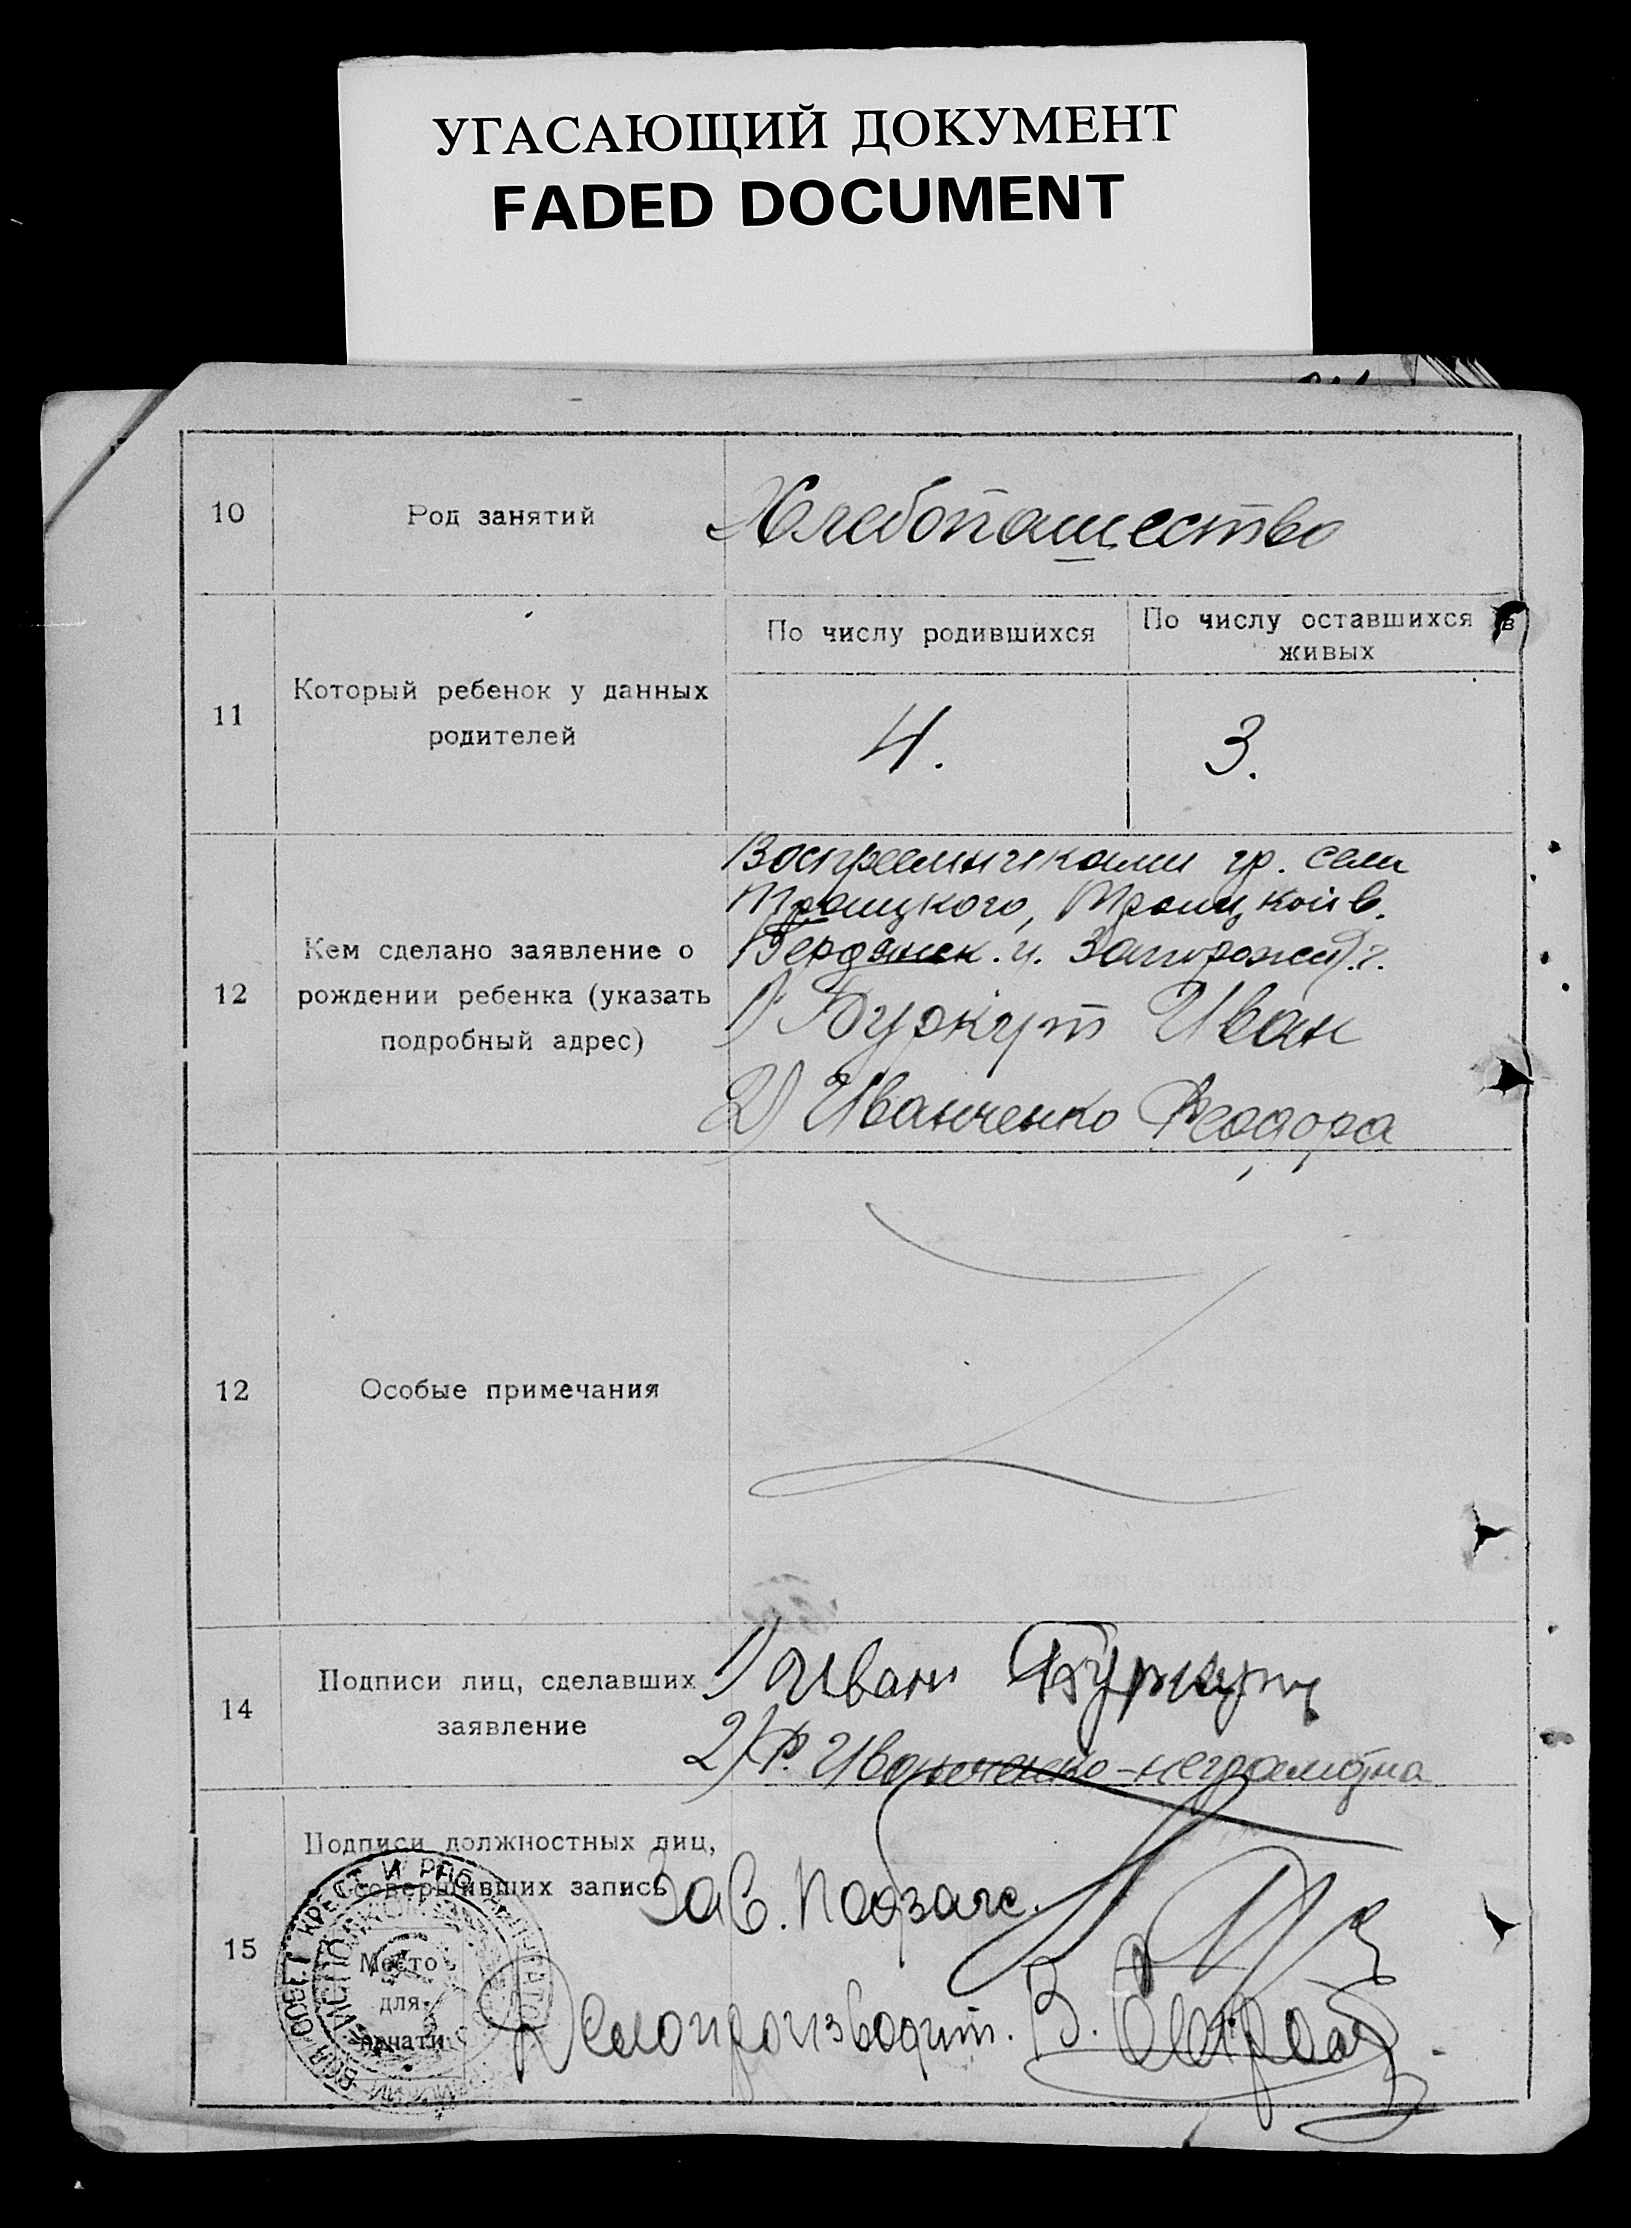 УГАСАЮЩИЙ ДОКУМЕНТ
FADED DOCUMENT
10
Род занятий
Хлебопашество
11
Который ребенок у данных
родителей
По числу родившихся
По числу оставшихся в
живых
4.
3.
12
Кем сделано заявление о
рождении ребенка (указать
подробный адрес)
Восприемниками гр. села
Троицкого, Троицкой в.
Бердянск. у. Запорожск. г.
1) Буркут Иван
2) Иванченко Феодора
12
Особые примечания
14
Подписи лиц, сделавших
заявление
1) Иван Буркут
2) Ф. Иванченко-неграмотна
15
Подписи должностных лиц,
совершивших запись
Зав. Подзагс.
Место
для
печати
Делопроизводит. В.